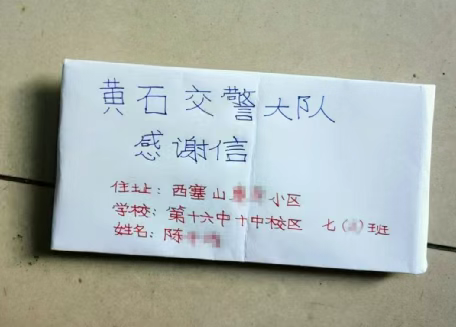 黄石交警大队
感谢信
住址：西塞山小区
学校：第十六中十中校区 七（）班
姓名：陈